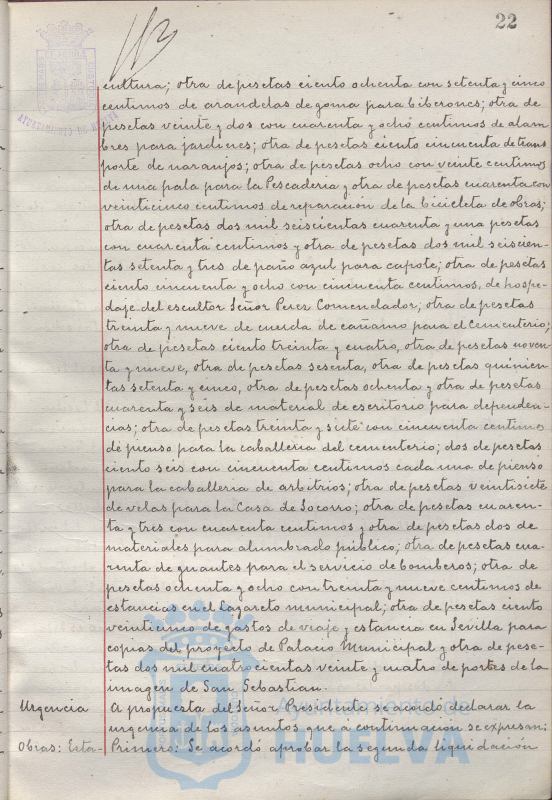 22
cultura; otra de pesetas ciento ochenta con setenta y cinco
centimos de arandelas de goma para biberones; otra de
pesetas veinte y dos con cuarenta y ocho centimos de alam
bres para jardines; otra de pesetas ciento cincuenta de trans
porte de naranjos; otra de pesetas ocho con veinte centimos
de una pala para la Pescaderia y otra de pesetas cuarenta con
veinticinco centimos de reparación de la bicicleta de obras;
otra de pesetas dos mil seiscientas cuarenta y una pesetas
con cuarenta centimos y otra de pesetas dos mil seiscien-
tas setenta y tres de paño azul para capote; otra de pesetas
ciento cincuenta y ocho con cincuenta centimos, de hospe-
daje del escultor Señor Perez Comendador; otra de pesetas
treinta y nueve de cuerda de cañamo para el Cementerio;
otra de pesetas ciento treinta y cuatro, otra de pesetas noven-
ta y nueve, otra de pesetas sesenta, otra de pesetas quinien-
tas setenta y cinco, otra de pesetas ochenta y otra de pesetas
cuarenta y seis de material de escritorio para dependen-
cias; otra de pesetas treinta y siete con cincuenta centimos
de pienso para la caballeria del cementerio; dos de pesetas
ciento seis con cincuenta centimos cada una de pienso
para la caballeria de arbitrios; otra de pesetas veintisiete
de velas para la Casa de Socorro; otra de pesetas cuaren-
ta y tres con cuarenta centimos y otra de pesetas dos de
materiales para alumbrado público; otra de pesetas cua-
renta de guantes para el servicio de bomberos; otra de
pesetas ochenta y ocho con treinta y nueve centimos de
estancias en el Lazareto municipal; otra de pesetas ciento
veinticinco de gastos de viaje y estancia en Sevilla para
copias del proyecto de Palacio Municipal y otra de pese-
tas dos mil cuatrocientas veinte y cuatro de portes de la
imagen de San Sebastian.
Urgencia A propuesta del Señor Presidente se acordó declarar la
urgencia de los asuntos que a continuación se expresan:
Obras: Esta- Primero: Se acordó aprobar la segunda liquidación
AYUNTAMIENTO DE HUELVA
Ayuntamiento de
HUELVA